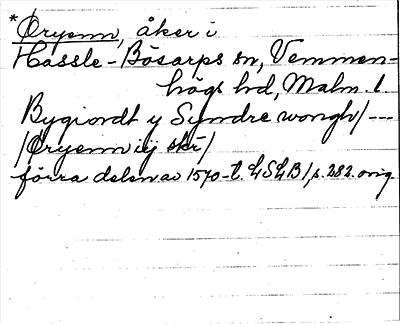 *Øryenn, åker i
Hassle-Bösarps sn, Vemmen-
högs hd, Malm. l.
Bygiordt y Syndre wongh/---
/Øryenn ij skr/
förra delen av 1570-t. LSLB/s. 282. orig